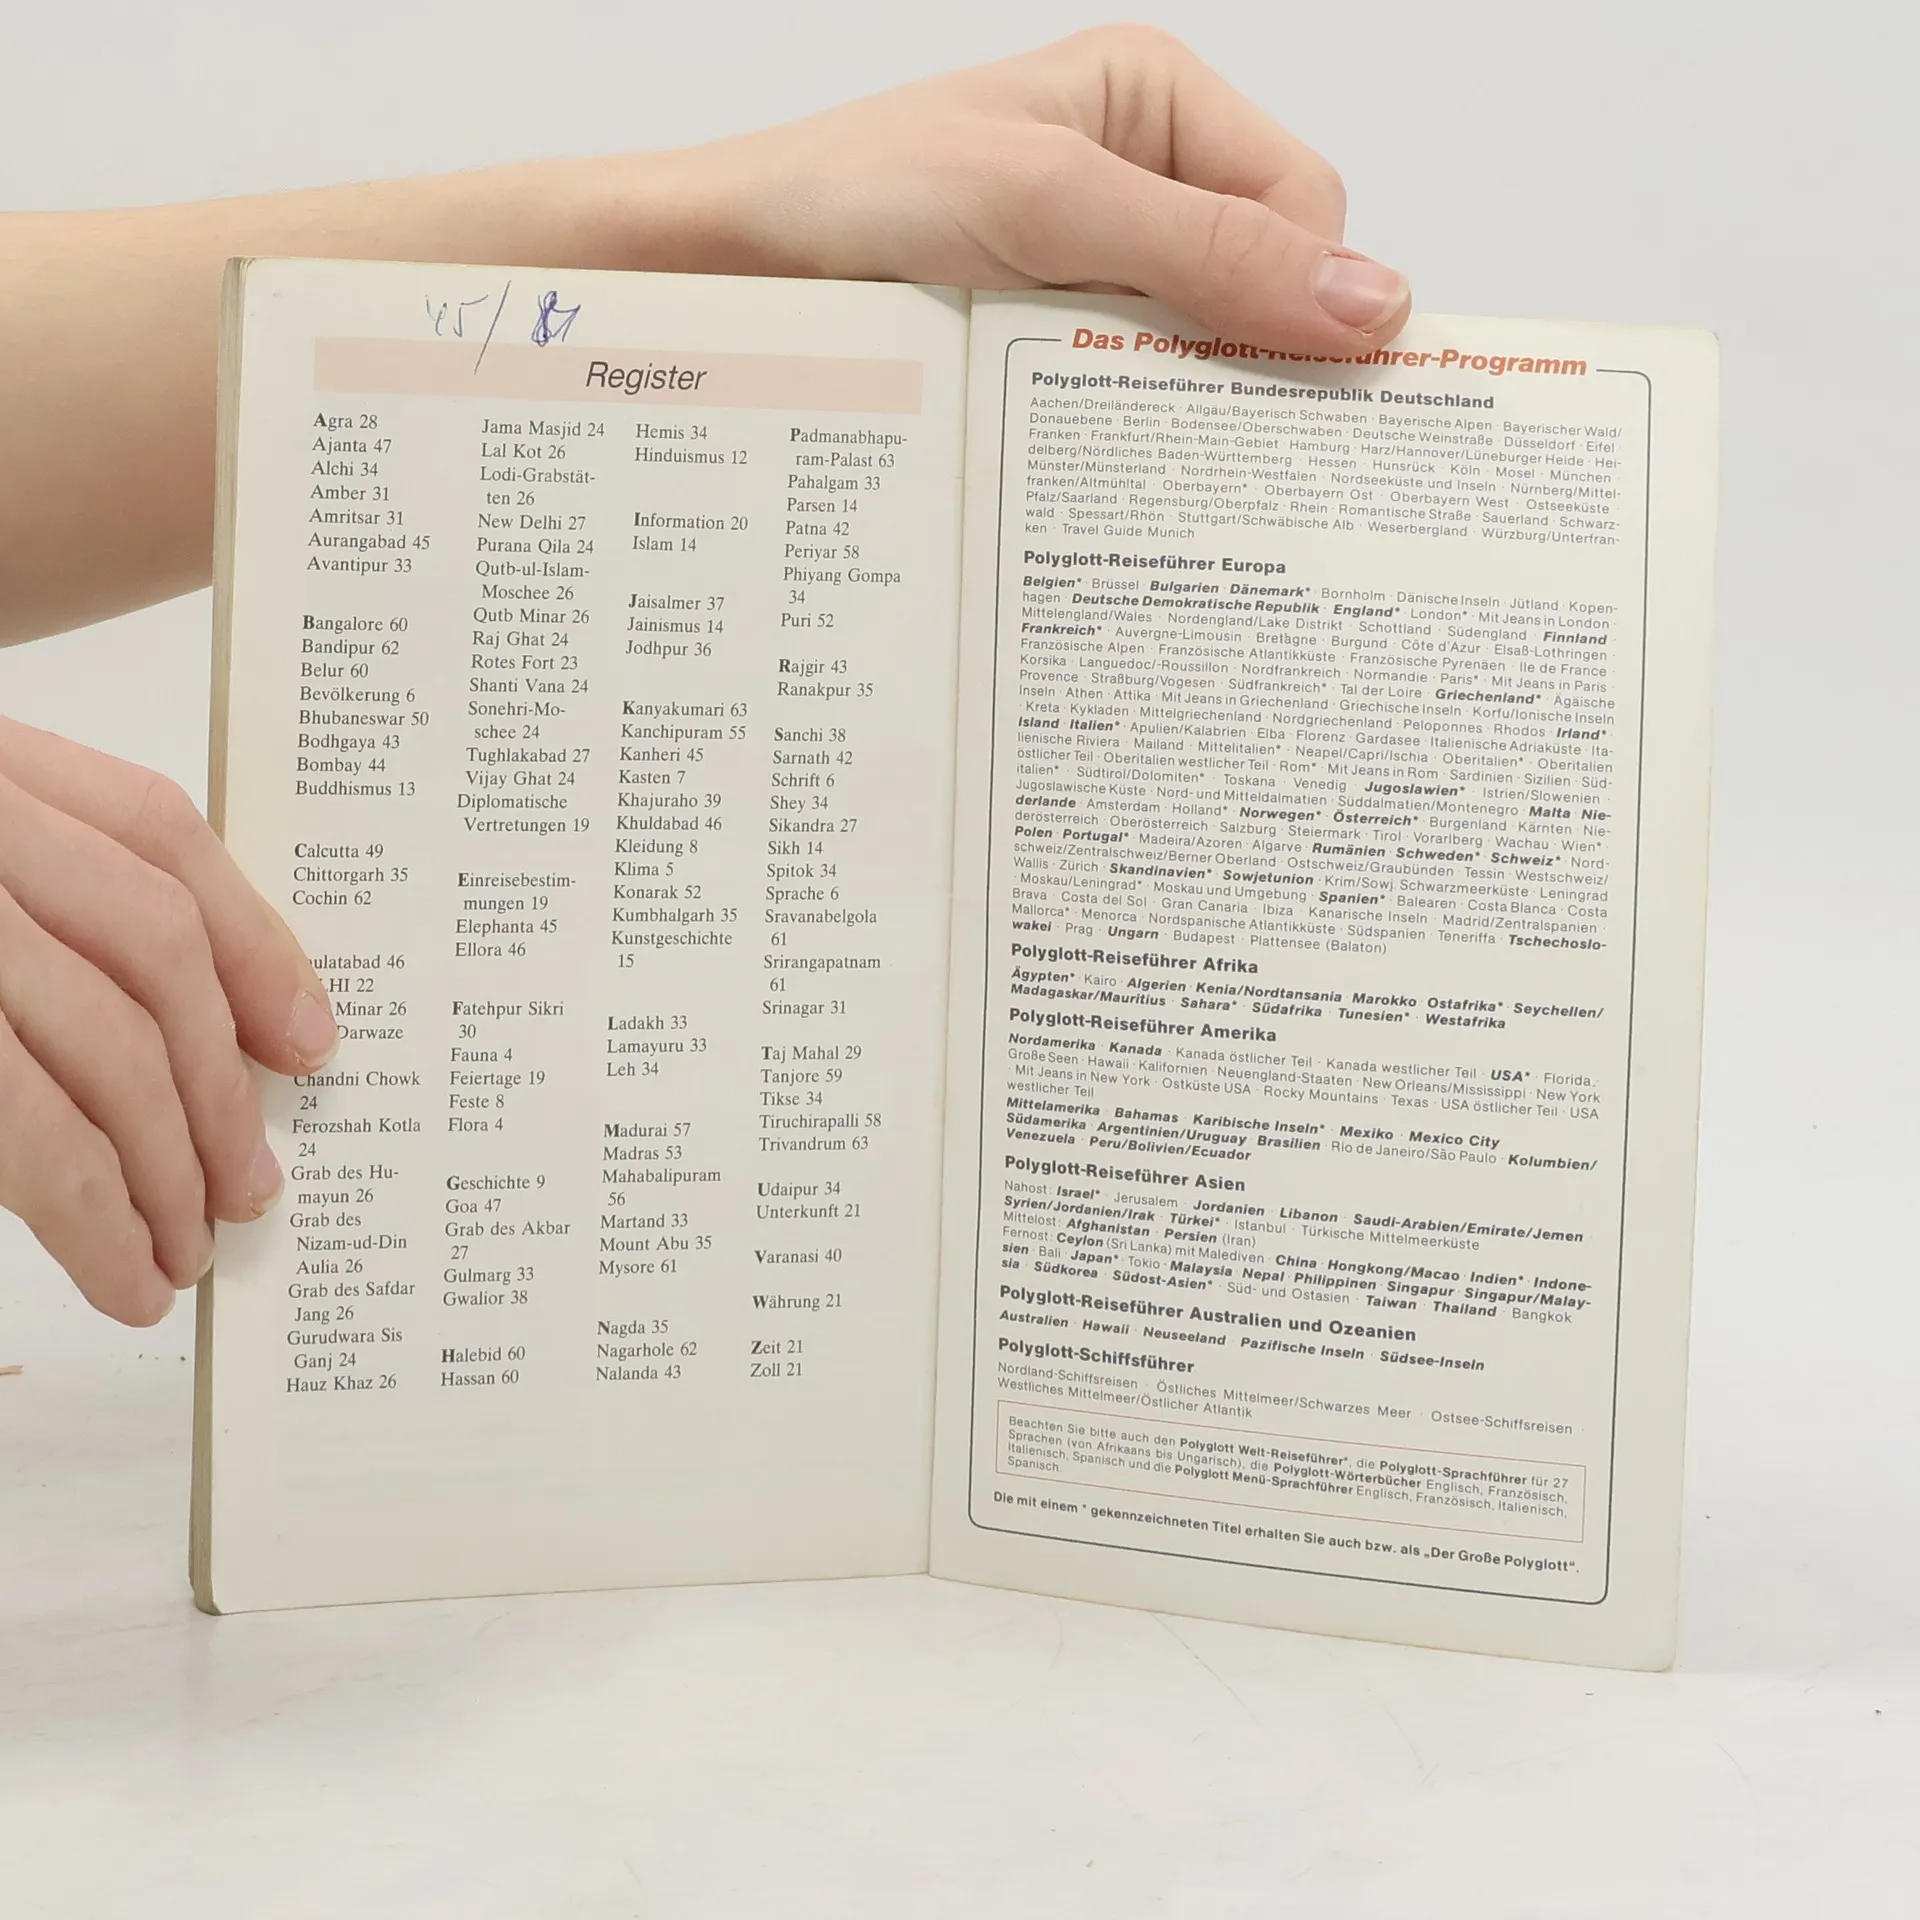 45/
Register
Agra 28
Ajanta 47
Alchi 34
Amber 31
Amritsar 31
Aurangabad 45
Avantipur 33
Bangalore 60
Bandipur 62
Belur 60
Bevölkerung 6
Bhubaneswar 50
Bodhgaya 43
Bombay 44
Buddhismus 13
Calcutta 49
Chittorgarh 35
Cochin 62
ulatabad 46
LHI 22
Minar 26
Darwaze
Chandni Chowk
24
Ferozshah Kotla
24
Grab des Hu-
mayun 26
Grab des
Nizam-ud-Din
Aulia 26
Grab des Safdar
Jang 26
Gurudwara Sis
Ganj 24
Hauz Khaz 26
Jama Masjid 24
Lal Kot 26
Lodi-Grabstät-
ten 26
New Delhi 27
Purana Qila 24
Qutb-ul-Islam-
Moschee 26
Qutb Minar 26
Raj Ghat 24
Rotes Fort 23
Shanti Vana 24
Sonehri-Mo-
schee 24
Tughlakabad 27
Vijay Ghat 24
Diplomatische
Vertretungen 19
Einreisebestim-
mungen 19
Elephanta 45
Ellora 46
Fatehpur Sikri
30
Fauna 4
Feiertage 19
Feste 8
Flora 4
Geschichte 9
Goa 47
Grab des Akbar
27
Gulmarg 33
Gwalior 38
Halebid 60
Hassan 60
Hemis 34
Hinduismus 12
Information 20
Islam 14
Jaisalmer 37
Jainismus 14
Jodhpur 36
Kanyakumari 63
Kanchipuram 55
Kanheri 45
Kasten 7
Khajuraho 39
Khuldabad 46
Kleidung 8
Klima 5
Konarak 52
Kumbhalgarh 35
Kunstgeschichte
15
Ladakh 33
Lamayuru 33
Leh 34
Madurai 57
Madras 53
Mahabalipuram
56
Martand 33
Mount Abu 35
Mysore 61
Nagda 35
Nagarhole 62
Nalanda 43
Padmanabhapu-
ram-Palast 63
Pahalgam 33
Parsen 14
Patna 42
Periyar 58
Phiyang Gompa
34
Puri 52
Rajgir 43
Ranakpur 35
Sanchi 38
Sarnath 42
Schrift 6
Shey 34
Sikandra 27
Sikh 14
Spitok 34
Sprache 6
Sravanabelgola
61
Srirangapatnam
61
Srinagar 31
Taj Mahal 29
Tanjore 59
Tikse 34
Tiruchirapalli 58
Trivandrum 63
Udaipur 34
Unterkunft 21
Varanasi 40
Währung 21
Zeit 21
Zoll 21
Das Polyglott-Reiseführer-Programm
Polyglott-Reiseführer Bundesrepublik Deutschland
Aachen/Dreiländereck · Allgäu/Bayerisch Schwaben · Bayerische Alpen · Bayerischer Wald/
Donauebene · Berlin · Bodensee/Oberschwaben · Deutsche Weinstraße · Düsseldorf · Eifel ·
Franken · Frankfurt/Rhein-Main-Gebiet · Hamburg · Harz/Hannover/Lüneburger Heide · Hei-
delberg/Nördliches Baden-Württemberg · Hessen · Hunsrück · Köln · Mosel · München ·
Münster/Münsterland · Nordrhein-Westfalen · Nordseeküste und Inseln · Nürnberg/Mittel-
franken/Altmühltal · Oberbayern* · Oberbayern Ost · Oberbayern West · Ostseeküste ·
Pfalz/Saarland · Regensburg/Oberpfalz · Rhein · Romantische Straße · Sauerland · Schwarz-
wald · Spessart/Rhön · Stuttgart/Schwäbische Alb · Weserbergland · Würzburg/Unterfran-
ken · Travel Guide Munich
Polyglott-Reiseführer Europa
Belgien* · Brüssel · Bulgarien · Dänemark* · Bornholm · Dänische Inseln · Jütland · Kopen-
hagen · Deutsche Demokratische Republik · England* · London* · Mit Jeans in London ·
Mittelengland/Wales · Nordengland/Lake Distrikt · Schottland · Südengland · Finnland ·
Frankreich* · Auvergne-Limousin · Bretagne · Burgund · Côte d'Azur · Elsaß-Lothringen ·
Französische Alpen · Französische Atlantikküste · Französische Pyrenäen · Ile de France ·
Korsika · Languedoc/-Roussillon · Nordfrankreich · Normandie · Paris* · Mit Jeans in Paris ·
Provence · Straßburg/Vogesen · Südfrankreich* · Tal der Loire · Griechenland* · Ägäische
Inseln · Athen · Attika · Mit Jeans in Griechenland · Griechische Inseln · Korfu/Ionische Inseln
· Kreta · Kykladen · Mittelgriechenland · Nordgriechenland · Peloponnes · Rhodos · Irland* ·
Island · Italien* · Apulien/Kalabrien · Elba · Florenz · Gardasee · Italienische Adriaküste · Ita-
lienische Riviera · Mailand · Mittelitalien* · Neapel/Capri/Ischia · Oberitalien* · Oberitalien
östlicher Teil · Oberitalien westlicher Teil · Rom* · Mit Jeans in Rom · Sardinien · Sizilien · Süd-
italien* · Südtirol/Dolomiten* · Toskana · Venedig · Jugoslawien* · Istrien/Slowenien ·
Jugoslawische Küste · Nord- und Mitteldalmatien · Süddalmatien/Montenegro · Malta · Nie-
derlande · Amsterdam · Holland* · Norwegen* · Österreich* · Burgenland · Kärnten · Nie-
derösterreich · Oberösterreich · Salzburg · Steiermark · Tirol · Vorarlberg · Wachau · Wien* ·
Polen · Portugal* · Madeira/Azoren · Algarve · Rumänien · Schweden* · Schweiz* · Nord-
schweiz/Zentralschweiz/Berner Oberland · Ostschweiz/Graubünden · Tessin · Westschweiz/
Wallis · Zürich · Skandinavien* · Sowjetunion · Krim/Sowj. Schwarzmeerküste · Leningrad
· Moskau/Leningrad* · Moskau und Umgebung · Spanien* · Balearen · Costa Blanca · Costa
Brava · Costa del Sol · Gran Canaria · Ibiza · Kanarische Inseln · Madrid/Zentralspanien ·
Mallorca* · Menorca · Nordspanische Atlantikküste · Südspanien · Teneriffa · Tschechoslo-
wakei · Prag · Ungarn · Budapest · Plattensee (Balaton)
Polyglott-Reiseführer Afrika
Ägypten* · Kairo · Algerien · Kenia/Nordtansania · Marokko · Ostafrika* · Seychellen/
Madagaskar/Mauritius · Sahara* · Südafrika · Tunesien* · Westafrika
Polyglott-Reiseführer Amerika
Nordamerika · Kanada · Kanada östlicher Teil · Kanada westlicher Teil · USA* · Florida ·
Große Seen · Hawaii · Kalifornien · Neuengland-Staaten · New Orleans/Mississippi · New York
· Mit Jeans in New York · Ostküste USA · Rocky Mountains · Texas · USA östlicher Teil · USA
westlicher Teil
Mittelamerika · Bahamas · Karibische Inseln* · Mexiko · Mexico City
Südamerika · Argentinien/Uruguay · Brasilien · Rio de Janeiro/São Paulo · Kolumbien/
Venezuela · Peru/Bolivien/Ecuador
Polyglott-Reiseführer Asien
Nahost: Israel* · Jerusalem · Jordanien · Libanon · Saudi-Arabien/Emirate/Jemen ·
Syrien/Jordanien/Irak · Türkei* · Istanbul · Türkische Mittelmeerküste
Mittelost: Afghanistan · Persien (Iran)
Fernost: Ceylon (Sri Lanka) mit Malediven · China · Hongkong/Macao · Indien* · Indone-
sien · Bali · Japan* · Tokio · Malaysia · Nepal · Philippinen · Singapur · Singapur/Malay-
sia · Südkorea · Südost-Asien* · Süd- und Ostasien · Taiwan · Thailand · Bangkok
Polyglott-Reiseführer Australien und Ozeanien
Australien · Hawaii · Neuseeland · Pazifische Inseln · Südsee-Inseln
Polyglott-Schiffsführer
Nordland-Schiffsreisen · Östliches Mittelmeer/Schwarzes Meer · Ostsee-Schiffsreisen ·
Westliches Mittelmeer/Östlicher Atlantik
Beachten Sie bitte auch den Polyglott Welt-Reiseführer*, die Polyglott-Sprachführer für 27
Sprachen (von Afrikaans bis Ungarisch), die Polyglott-Wörterbücher Englisch, Französisch,
Italienisch, Spanisch und die Polyglott Menü-Sprachführer Englisch, Französisch, Italienisch,
Spanisch.
Die mit einem * gekennzeichneten Titel erhalten Sie auch bzw. als „Der Große Polyglott“.